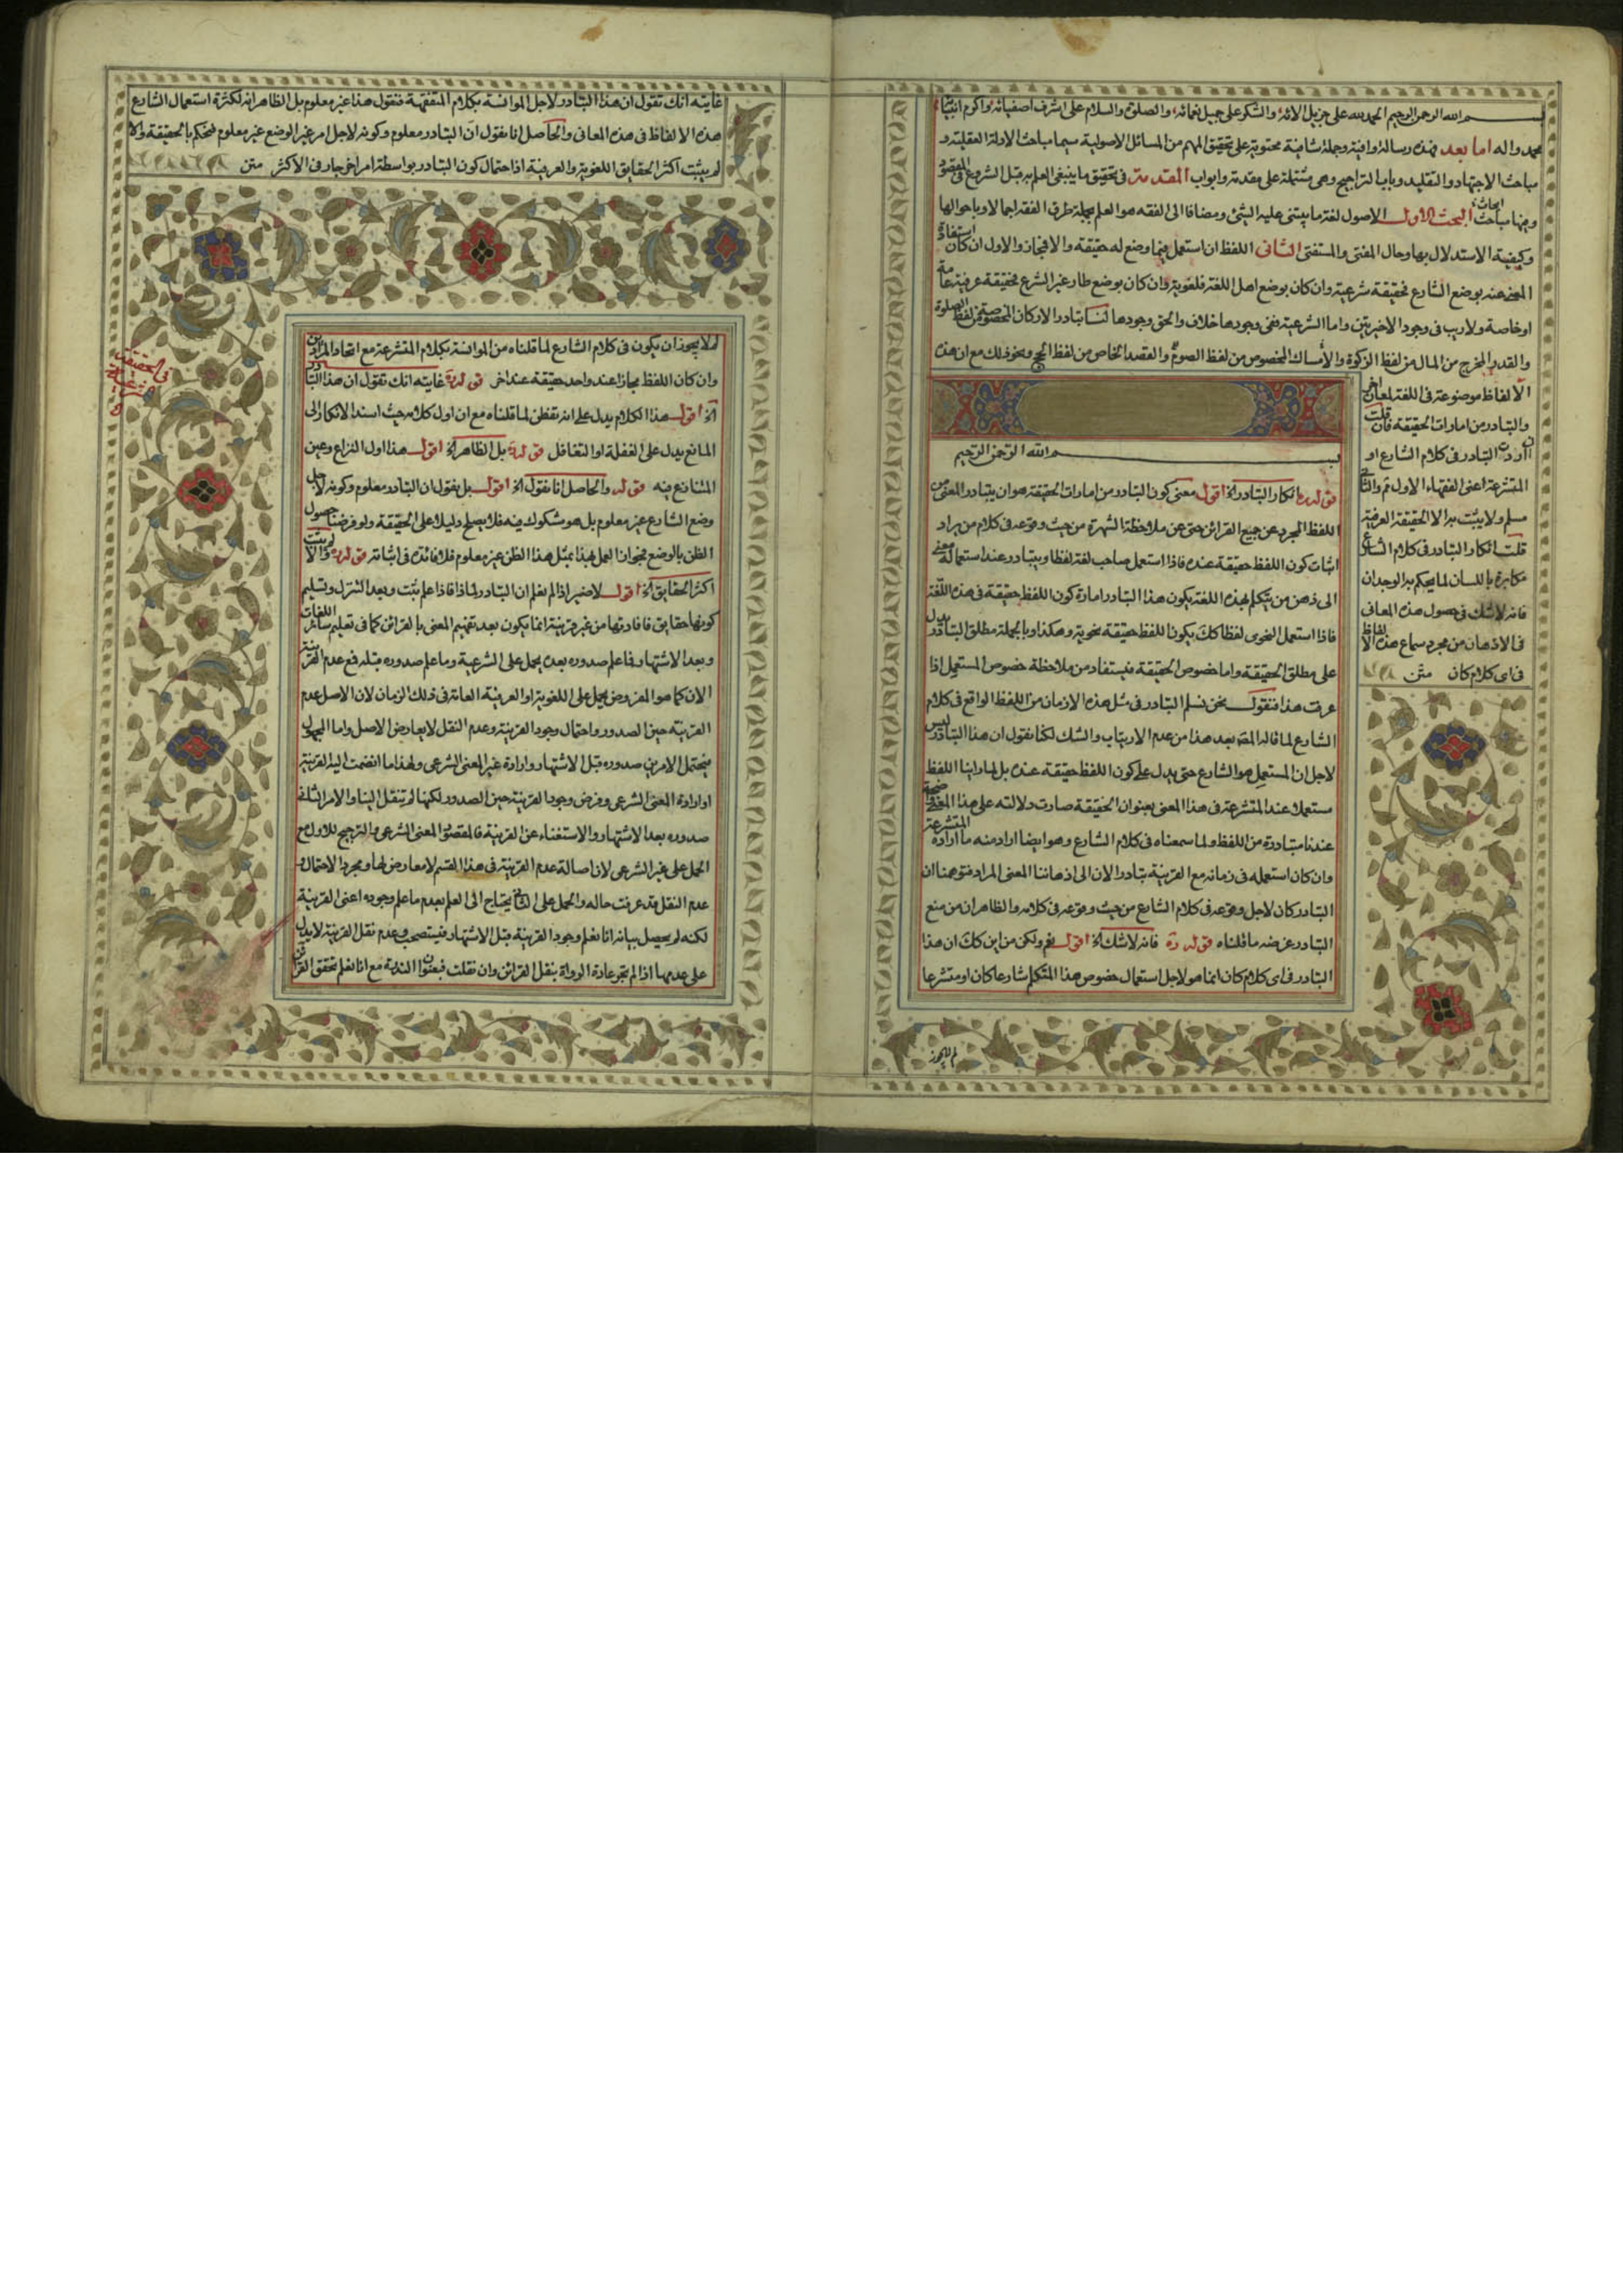 بسم الله الرحمن الرحيم الحمد لله على جزيل الائه والشكر على جميل نعمائه والصلوة والسلام على اشرف اصفيائه واكرم انبيائه
محمد واله اما بعد فهذه رسالة وافية وجملة شافية محتوية على تحقيق المهم من المسائل الاصولية سيما مباحث الادلة العقلية و
مباحث الاجتهاد والتقليد وباب التراجيح وهى مشتملة على مقدمة وابواب المقدمة فى تحقيق ما ينبغى العلم به قبل الشروع فى المقصود
وفيها مباحث ابحاث البحث الاول الاصول لغة ما يبتنى عليه الشئ ومضافا الى الفقه هو العلم بجملة طرق الفقه اجمالا وباحوالها
وكيفية الاستدلال بها وحال المفتى والمستفتى الثانى اللفظ ان استعمل فيما وضع له فحقيقة والا فمجاز والاول ان كان استفادة
المعنى عنه بوضع الشارع فحقيقة شرعية وان كان بوضع اهل اللغة فلغوية وان كان بوضع طار غير الشرع فحقيقة عرفية عامة
او خاصة ولا ريب فى وجود الاخيرتين واما الشرعية ففى وجودها خلاف والحق وجودها لنا تبادر الاركان المخصوصة من لفظ الصلوة
والقدر المخرج من المال من لفظ الزكوة والأمساك المخصوص من لفظ الصوم والقصد الخاص من لفظ الحج ونحو ذلك مع ان هذه
الألفاظ موضوعة فى اللغة لمعان اخر
والتبادر من امارات الحقيقة فان قلت
ان اردت التبادر فى كلام الشارع او
المتشرعة اعنى الفقهاء الاول ثم والثانى
مسلم ولا يثبت به الا الحقيقة العرفية
قلت انكار التبادر فى كلام الشارع
مكابرة باللسان لما يحكم به الوجدان
فانه لا شك فى حصول هذه المعانى
فى الاذهان من مجرد سماع هذه الالفاظ
فى اى كلام كان متن
بسم الله الرحمن الرحيم
قوله ره انكار التبادر الخ اقول معنى كون التبادر من امارات الحقيقة هو ان يتبادر المعنى من
اللفظ المجرد عن جميع القرائن حتى عن ملاحظة الشهرة من حيث وقوعه فى كلام من يراد
اثبات كون اللفظ حقيقة عنده فاذا استعمل صاحب لغة لفظا ويتبادر عند استعماله معنى
الى ذهن من يتكلم بهذه اللغة يكون هذا التبادر امارة كون اللفظ حقيقة فى هذه اللغة
فاذا استعمل النحوى لفظا كك يكون اللفظ حقيقة نحوية وهكذا وبالجملة مطلق التبادر يدل
على مطلق الحقيقة واما خصوص الحقيقة فيستفاد من ملاحظة خصوص المستعمل اذا
عرفت هذا فنقول نحن نسلم التبادر فى مثل هذه الازمان من اللفظ الواقع فى كلام
الشارع لما قاله المصه بعد هذا من عدم الارتياب والشك لكنا نقول ان هذا التبادر ليس
لاجل ان المستعمل هو الشارع حتى يدل على كون اللفظ حقيقة عنده بل لما راينا اللفظ
مستعملا عند المتشرعة فى هذا المعنى بعنوان الحقيقة صارت دلالته على هذا المعنى
عندنا متبادرة من اللفظ ولما سمعناه فى كلام الشارع وهو ايضا اراد منه ما اراده المتشرعة
وان كان استعمله فى زمانه مع القرينة تبادر الان الى اذهاننا المعنى المراد فتوهمنا ان
التبادر كان لاجل وقوعه فى كلام الشارع من حيث وقوعه فى كلامه والظاهر ان من منع
التبادر غرضه ما قلناه قوله ره فانه لا شك الخ اقول نعم ولكن من اين كك ان هذا
التبادر فى اى كلام كان انما هو لاجل استعمال خصوص هذا المتكلم شارعا كان او متشرعا
لم لا يجوز
غايته انك تقول ان هذا التبادر لاجل الموانسة بكلام المتفقهة فنقول هذا غير معلوم بل الظاهر انه لكثرة استعمال الشارع
هذه الالفاظ فى هذه المعانى والحاصل انا نقول ان التبادر معلوم وكونه لاجل امر غير الوضع غير معلوم فنحكم بالحقيقة والا
لم يثبت اكثر الحقايق اللغوية والعرفية اذا احتمال كون التبادر بواسطة امر اخر جار فى الاكثر متن
لم لا يجوز ان يكون فى كلام الشارع لما قلناه من الموانسة بكلام المتشرعة مع اتحاد المرادين
وان كان اللفظ مجازا عند واحد حقيقة عند اخر قوله ره غايته انك تقول ان هذا التبادر
الخ اقول هذا الكلام يدل على انه تفطن لما قلناه مع ان اول كلامه حيث اسند الانكار الى
المانع يدل على الغفلة او التغافل قوله ره بل الظاهر الخ اقول هذا اول النزاع وعين
المتنازع فيه قوله والحاصل انا نقول الخ اقول بل نقول ان التبادر معلوم وكونه لاجل
وضع الشارع غير معلوم بل هو مشكوك فيه فلا يصلح دليلا على الحقيقة ولو فرضنا حصول
الظن بالوضع فجواز العمل بمثل هذا الظن غير معلوم فلا فائدة فى اثباته قوله ره والا لم يثبت
اكثر الحقايق الخ اقول لا ضير اذا لم نعلم ان التبادر لماذا فاذا علم ثبت وبعد التنزل وتسليم
كونها حقايق فافادتها من غير قرينة انما يكون بعد تفهيم المعنى بالقرائن كما فى تعليم سائر اللغات
وبعد الاشتهار فما علم صدوره بعده يحمل على الشرعية وما علم صدوره قبله فمع عدم القرينة
الان كما هو المفروض يحمل على اللغوية او العرفية العامة فى ذلك الزمان لان الاصل عدم
القرينة حين الصدور واحتمال وجود القرينة وعدم النقل لا يعارض الاصل واما المجهول
فيحتمل الامرين صدوره قبل الاشتهار وارادة غير المعنى الشرعى ولهذا ما انضمت اليه القرينة
او ارادة المعنى الشرعى وفرض وجود القرينة حين الصدور لكنها لم تنقل الينا والامر الثالث
صدوره بعد الاشتهار والاستغناء عن القرينة فالمقصود المعنى الشرعى والترجيح للاول مع
الحمل على غير الشرعى لان اصالة عدم القرينة فى هذا القسم لا معارض لها ومجرد الاحتمال و
عدم النقل قد عرفت حاله والحمل على الثالث يحتاج الى العلم بعدم ما علم وجوده اعنى القرينة
لكنه لم يحصل بيانه انا نعلم وجود القرينة قبل الاشتهار فيستصحب وعدم نقل القرينة لا يدل
على عدمها اذ لم تجر عادة الرواة بنقل القرائن وان نقلت فبعنوان الندرة مع انا نعلم تحقق القرائن
فى الحقيقة الشرعية